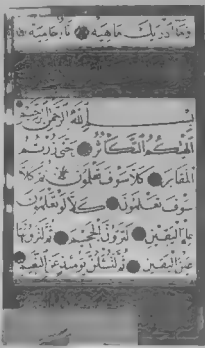 وَمَآ أَدْرٰيكَ مَاهِيَهْ نَارٌ حَامِيَهْ
بِسْمِ اللّٰهِ الرَّحْمٰنِ الرَّحِيمِ
اَلْهٰيكُمُ التَّكَاثُرُ حَتّٰى زُرْتُمُ
الْمَقَابِرَ كَلَّا سَوْفَ تَعْلَمُونَ ثُمَّ كَلَّا
سَوْفَ تَعْلَمُونَ كَلَّا لَوْ تَعْلَمُونَ
عِلْمَ الْيَقِينِ لَتَرَوُنَّ الْجَحِيمَ ثُمَّ لَتَرَوُنَّهَا
عَيْنَ الْيَقِينِ ثُمَّ لَتُسْـَٔلُنَّ يَوْمَئِذٍ عَنِ النَّعِيمِ